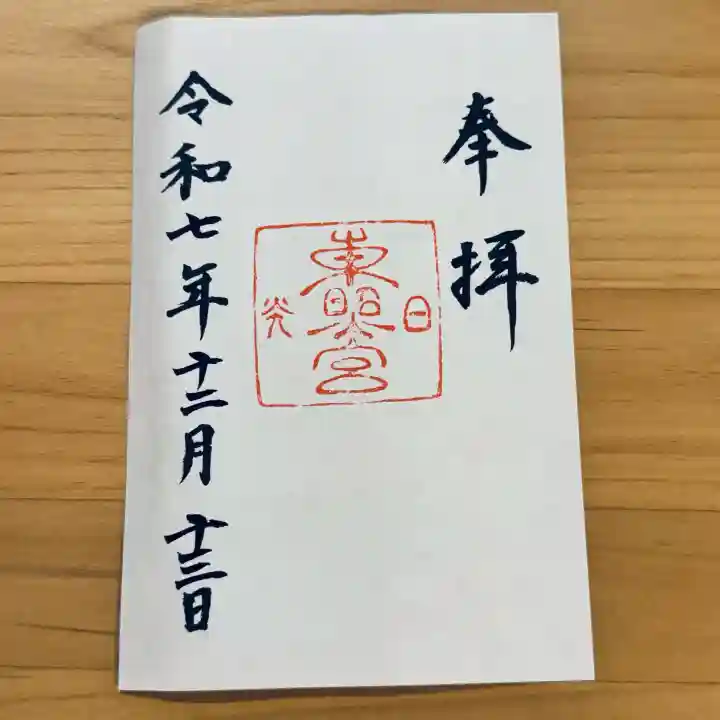 奉拝
日光
東照宮
令和七年十二月十三日